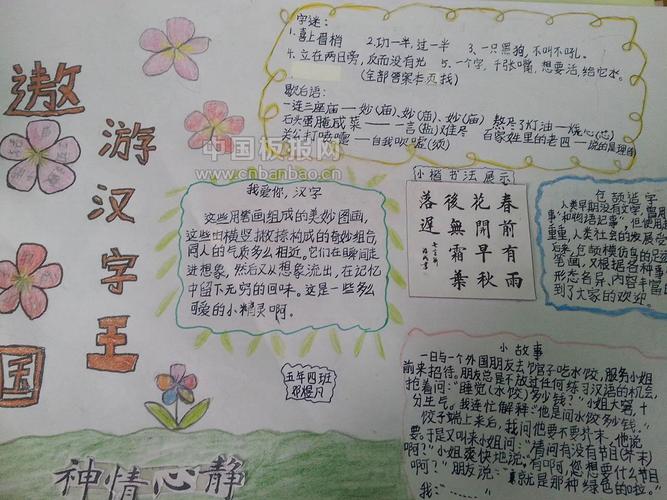 遨
游
汉
字
王
国
字迷:
1.喜上眉梢 2.功一半,过一半 3.一只黑狗,不叫不吼。
4.立在两日旁,反而没有光 5.一个字,千张嘴,想要活,给它水。
(全部答案本页找)
歇后语:
一连三座庙——妙(庙)、妙(庙)、妙(庙) 熬尽了灯油——烧心(芯)
石头蛋腌咸菜——一言(盐)难尽 百家姓里的老四——说的是理
关公打喷嚏——自我吹嘘(须)
中国板报网
www.cnbanbao.cn
我爱你,汉字
这些用笔画组成的美妙图画,
这些由横竖撇捺构成的奇妙组合,
同人的气质多么相近。它们在瞬间走
进想象,然后又从想象流出,在记忆
中留下无穷的回味。这是一些多么
可爱的小精灵啊。
小楷书法展示
春前有雨
花開早秋
後無霜葉
落遲
仓颉造字
人类早期没有文字,曾用
事"和物语记事",但使用
重重,人类社会的发展
后来,仓颉模仿鸟的足迹
笔画,又根据各种事
形态各异、内容丰富
到了大家的欢迎
五年四班
小故事
一日与一个外国朋友去饺子馆吃水饺,服务小姐
前来招待。朋友总是不放过任何练习汉语的机会,
抢着问:"睡觉(水饺)多少钱?"小姐大窘,十
分生气。我连忙解释:"他是问水饺多少钱。"
饺子端上来后,我问他要不要芥末,他说
要。于是又叫来小姐问:"请问有没有节目(芥末)
啊?"小姐爽快地说:"有啊,您想要什么节目
啊?"朋友说:"就是那种绿色的啦。"
我:……
神情心静